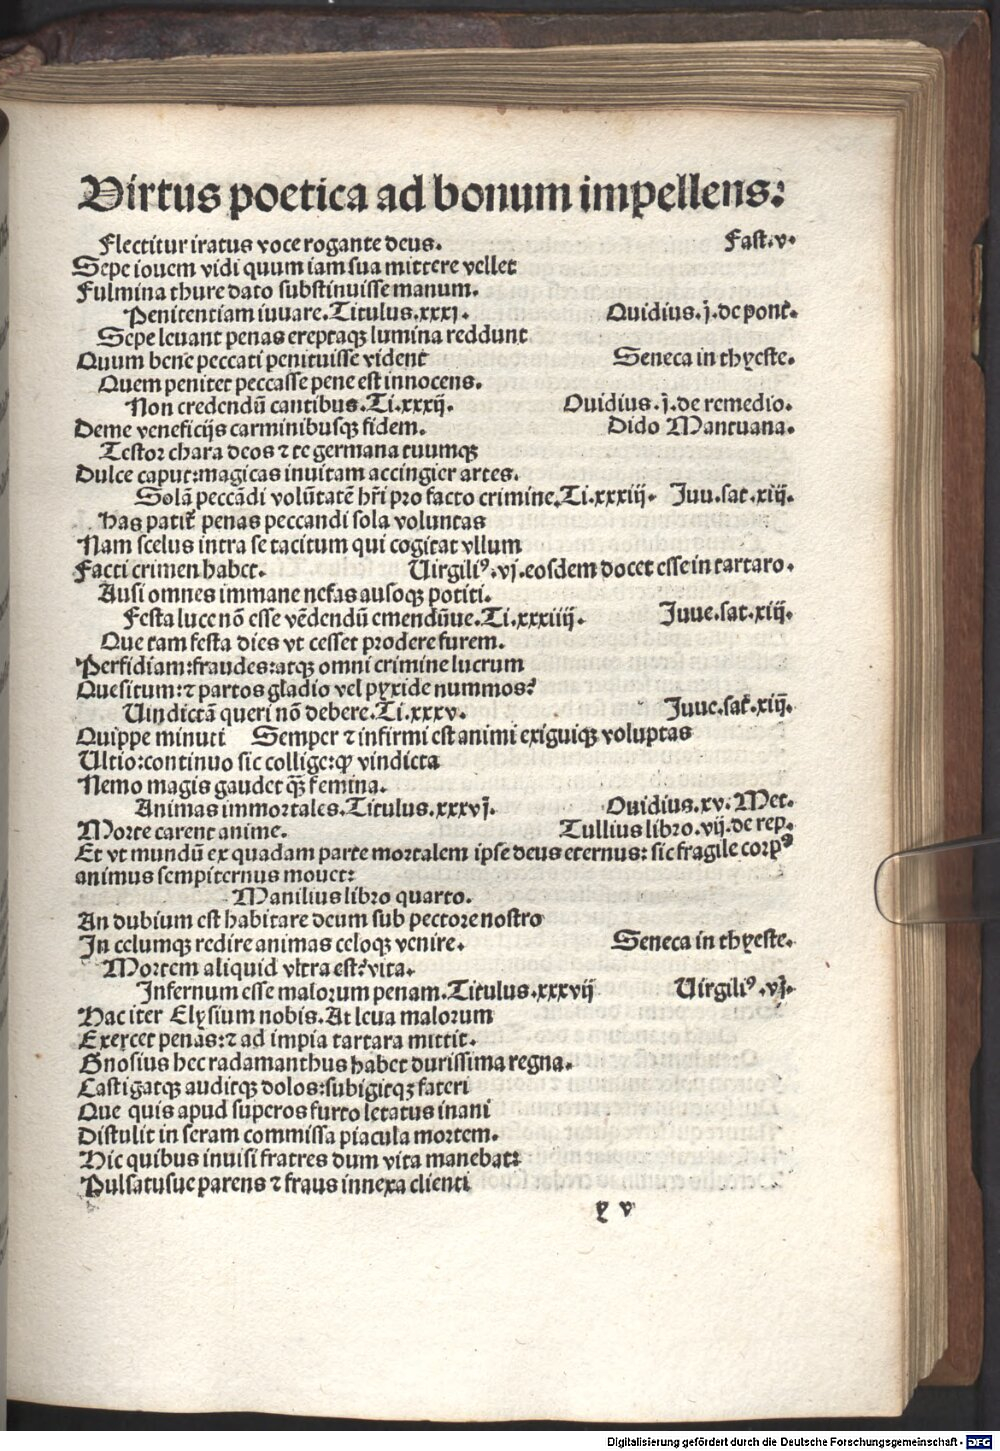 Virtus poetica ad bonum impellens:
Flectitur iratus voce rogante deus. Fast.v.
Sepe iouem vidi quum iam sua mittere vellet
Fulmina thure dato substinuisse manum.
Penitentiam iuuare. Titulus.xxxj. Ouidius.j.de pont.
Sepe leuant penas ereptaqꝫ lumina reddunt
Quum bene peccati penituisse vident Seneca in thyeste.
Quem penitet peccasse pene est innocens.
Non credendū cantibus. Ti.xxxij. Ouidius.j.de remedio.
Deme veneficijs carminibusqꝫ fidem. Dido Mantuana.
Testor chara deos ⁊ te germana tuumqꝫ
Dulce caput: magicas inuitam accingier artes.
Solā peccādi volūtatē hr̄i pro facto crimine. Ti.xxxiij. Juu.sat.xiij.
Has patit᷑ penas peccandi sola voluntas
Nam scelus intra se tacitum qui cogitat vllum
Facti crimen habet. Uirgiliꝰ.vj.eosdem docet esse in tartaro.
Ausi omnes immane nefas ausoqꝫ potiti.
Festa luce nō esse vēdendū emendūue. Ti.xxxiiij. Juue.sat.xiij.
Que tam festa dies vt cesset prodere furem.
Perfidiam: fraudes: atqꝫ omni crimine lucrum
Quesitum: ⁊ partos gladio vel pyxide nummos?
Uindictā queri nō debere. Ti.xxxv. Juue.sat.xiij.
Quippe minuti Semper ⁊ infirmi est animi exiguiqꝫ voluptas
Ultio: continuo sic collige: ꝙ vindicta
Nemo magis gaudet qꝫ̄ femina.
Animas immortales. Titulus.xxxvj. Ouidius.xv.Met.
Morte carent anime. Tullius libro.vij.de rep.
Et vt mundū ex quadam parte mortalem ipse deus eternus: sic fragile corpꝰ
animus sempiternus mouet:
Manilius libro quarto.
An dubium est habitare deum sub pectore nostro
In celumqꝫ redire animas celoqꝫ venire. Seneca in thyeste.
Mortem aliquid vltra est? vita.
Infernum esse malorum penam. Titulus.xxxvij Uirgiliꝰ.vj.
Hac iter Elysium nobis. At leua malorum
Exercet penas: ⁊ ad impia tartara mittit.
Gnosius hec radamanthus habet durissima regna.
Castigatqꝫ auditqꝫ dolos: subigitqꝫ fateri
Que quis apud superos furto letatus inani
Distulit in seram commissa piacula mortem.
Hic quibus inuisi fratres dum vita manebat:
Pulsatusue parens ⁊ fraus innexa clienti
y v
Digitalisierung gefördert durch die Deutsche Forschungsgemeinschaft - DFG